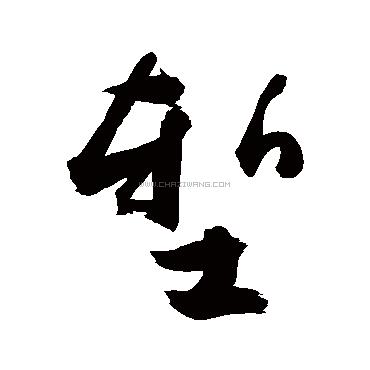 塹
WWW.CHAZIWANG.COM